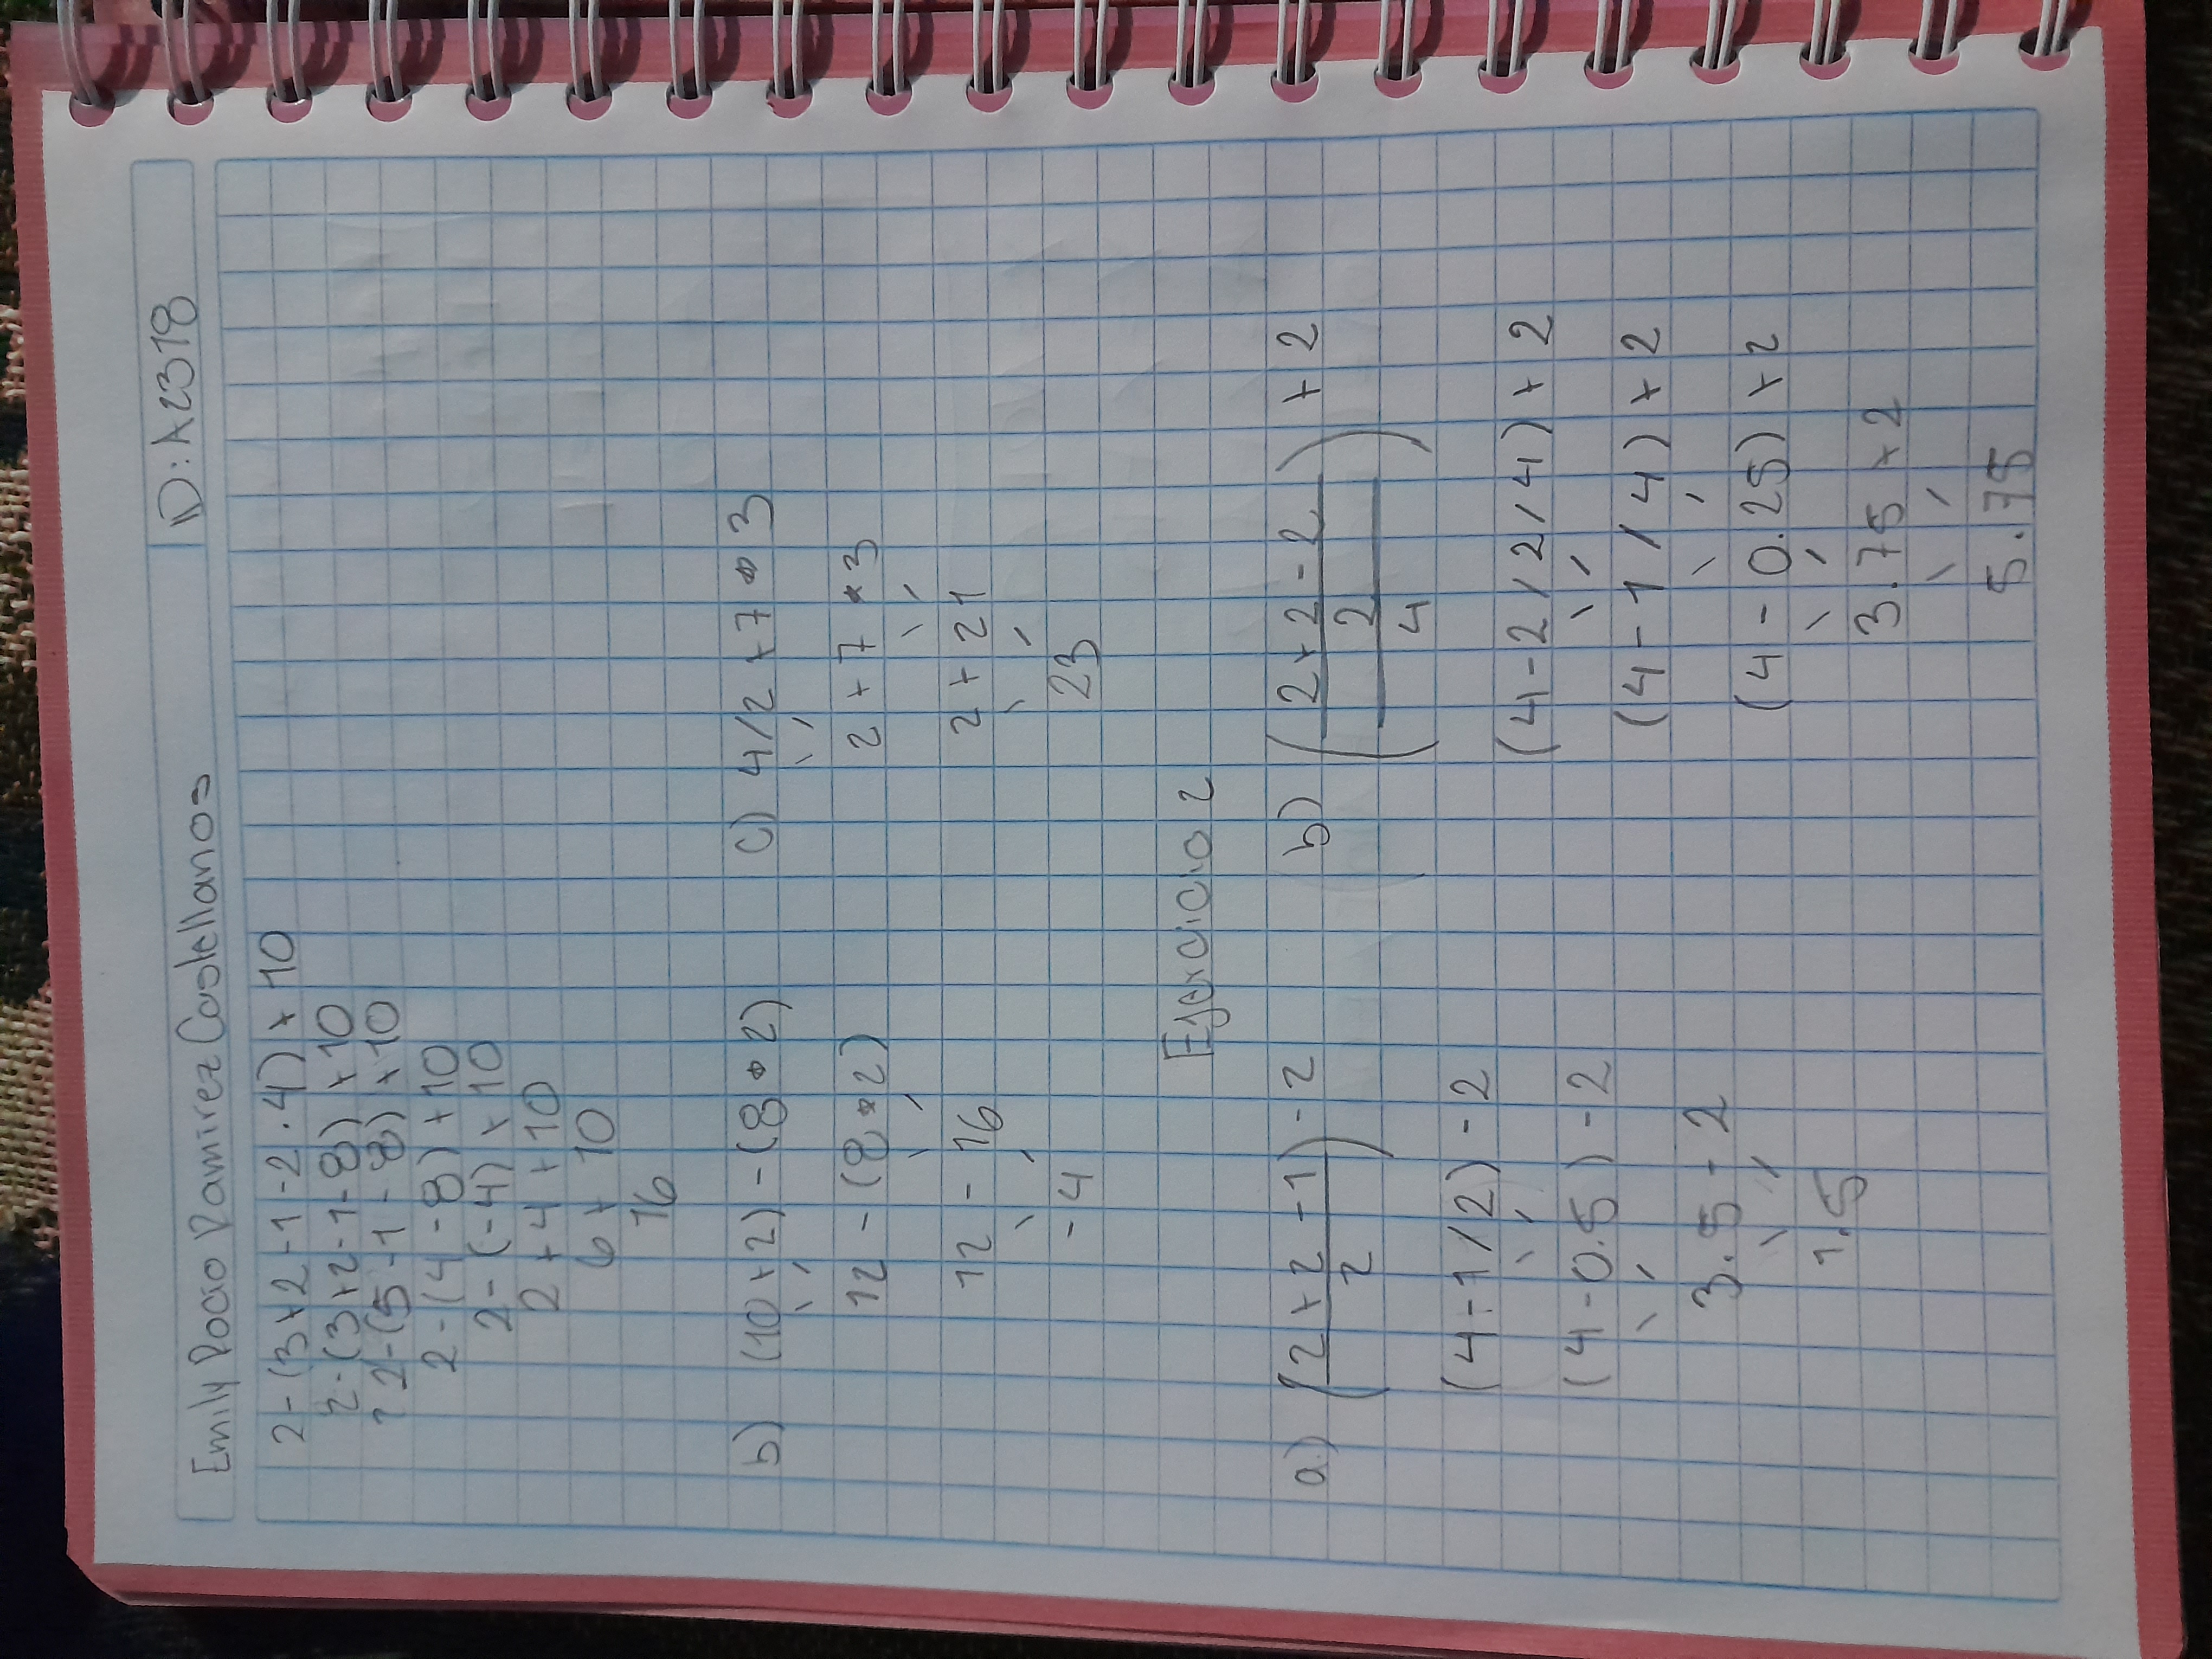 Emily Rocio Ramirez Castellanos ID: A2318
2-(3+2-1-2.4)+10
2-(3+2-1-8)+10
2-(5-1-8)+10
2-(4-8)+10
2-(-4)+10
2+4+10
6+10
16
b) (10+2)-(8*2)
12-(8*2)
12-16
-4
c) 4/2+7*3
2+7*3
2+21
23
Ejercicio 2
a) (2+2-1)-2
2
(4-1/2)-2
(4-0.5)-2
3.5-2
1.5
b) (2+2-2)+2
2
4
(4-2/2/4)+2
(4-1/4)+2
(4-0.25)+2
3.75+2
5.75